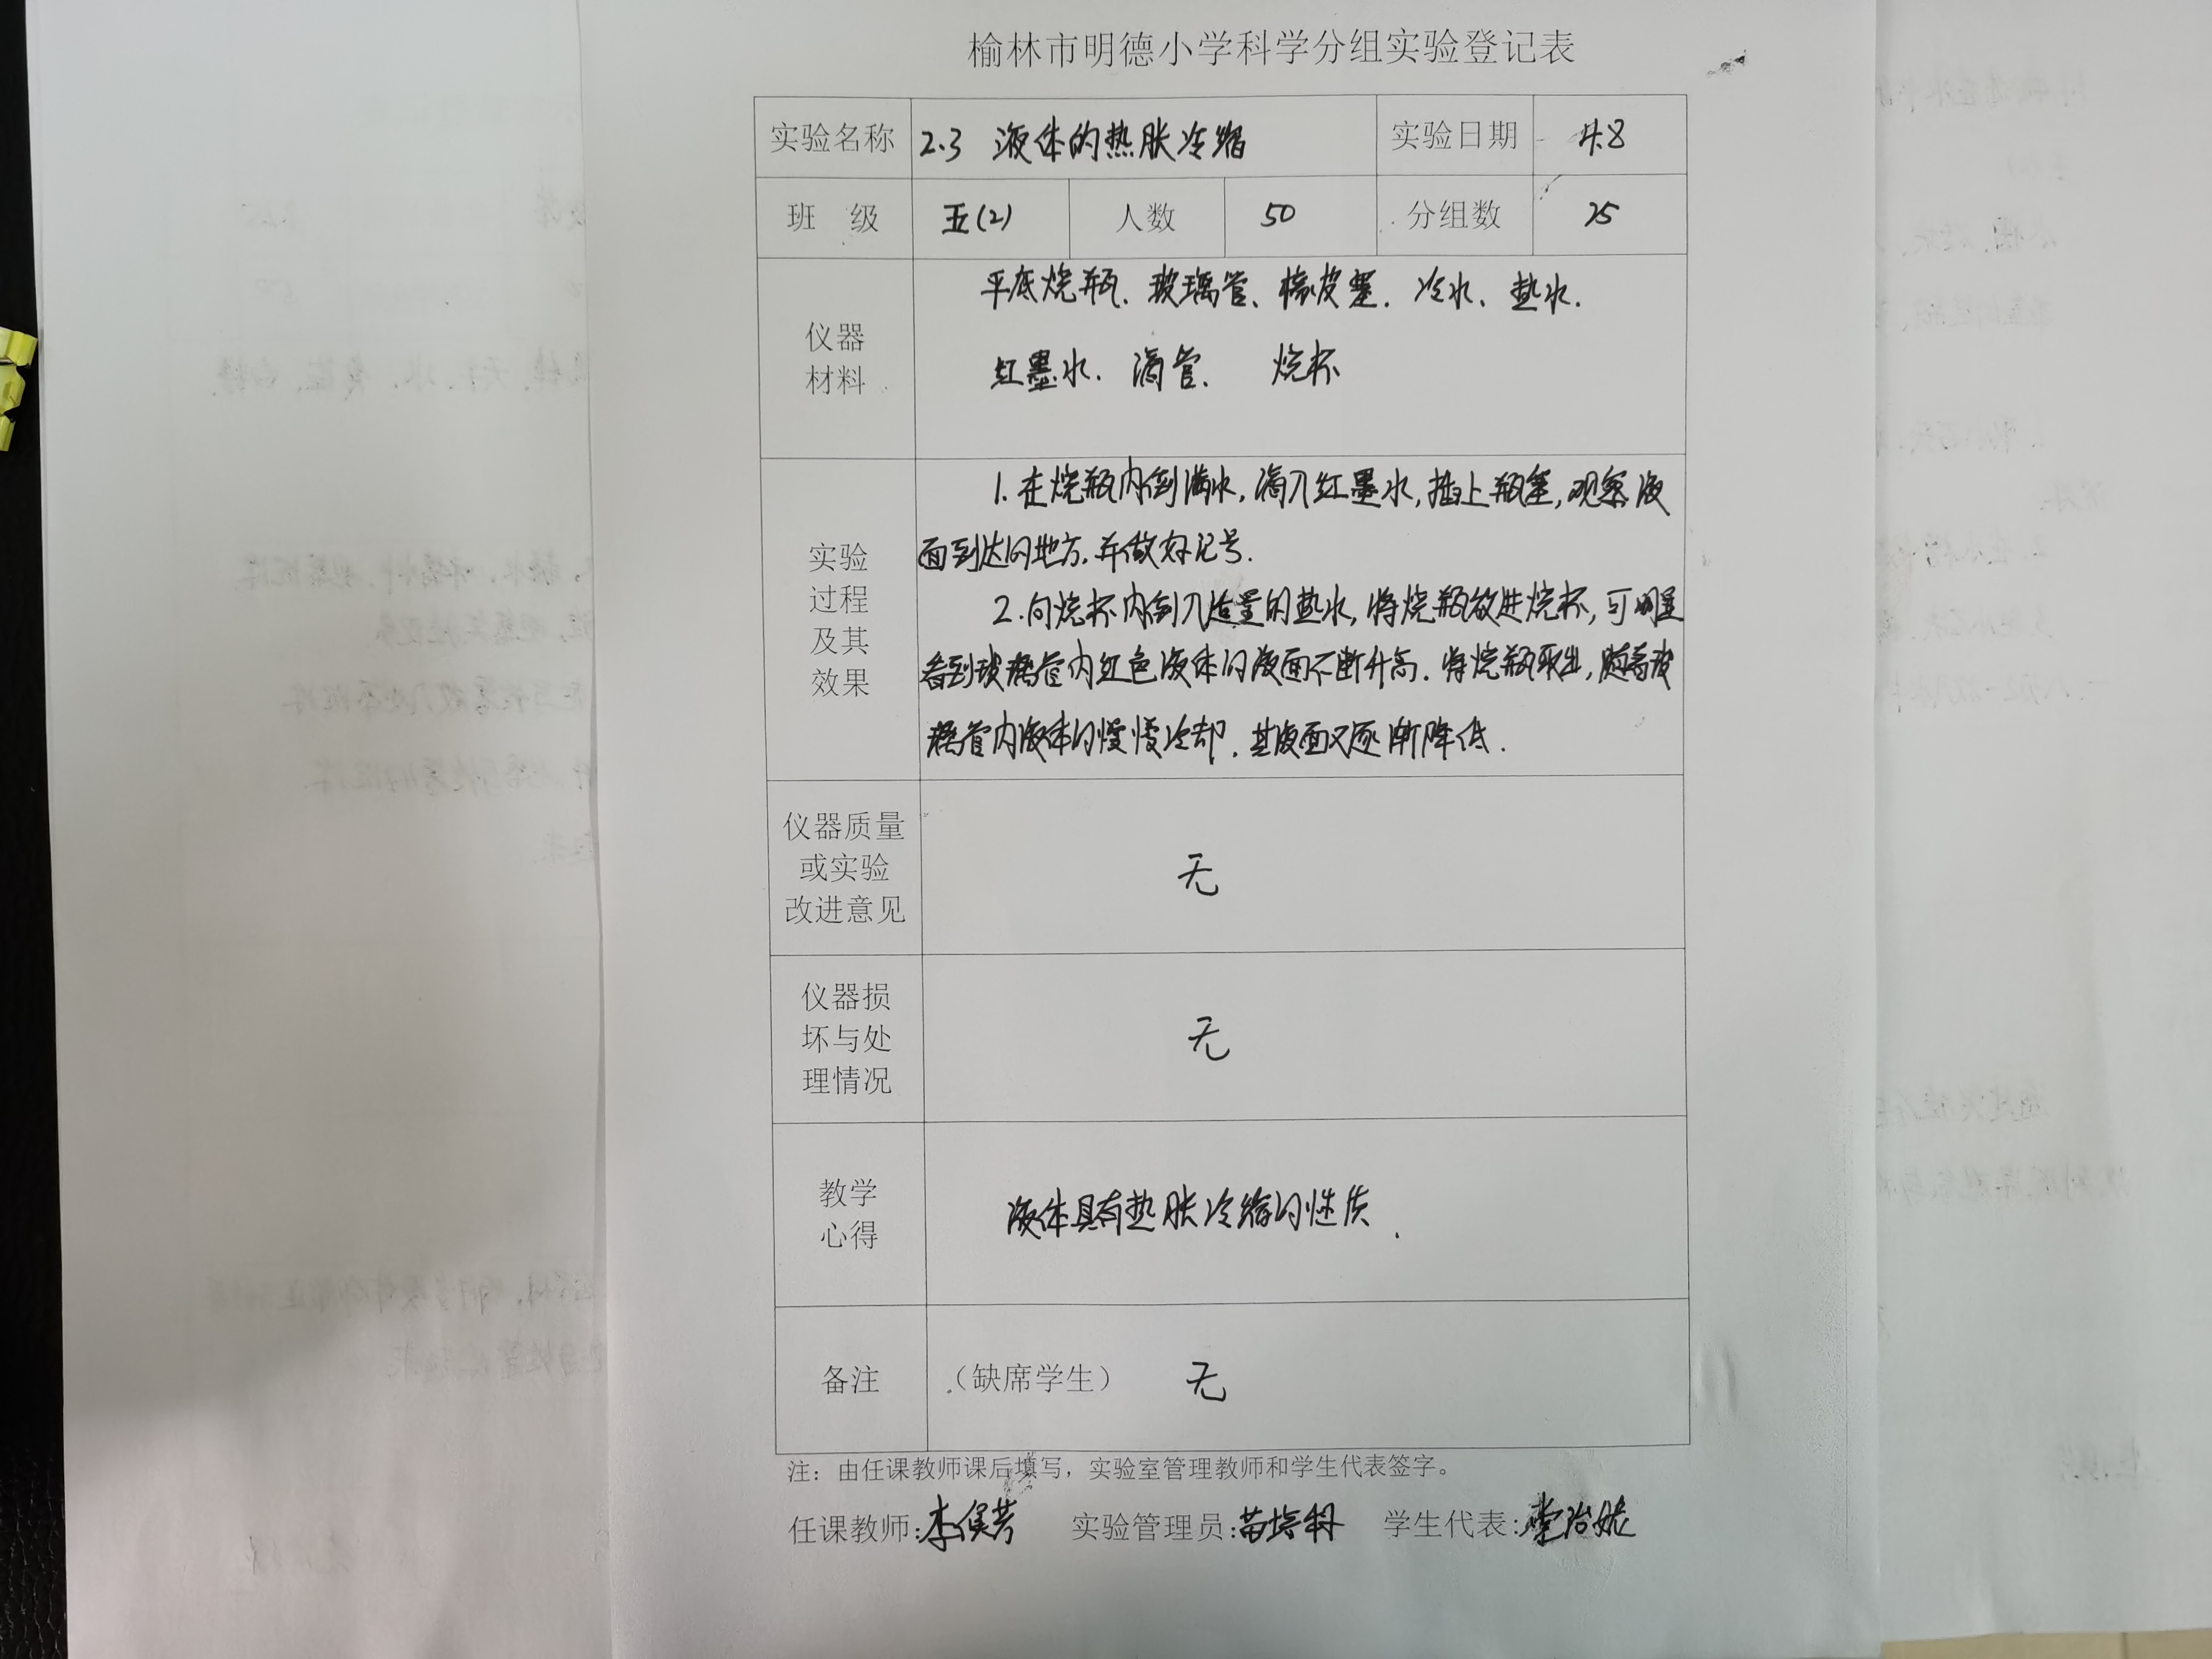 榆林市明德小学科学分组实验登记表
实验名称 2.3 液体的热胀冷缩 实验日期 4.8
班 级 五(2) 人数 50 分组数 25
仪器
材料
平底烧瓶、玻璃管、橡皮塞、冷水、热水、
红墨水、滴管、 烧杯
实验
过程
及其
效果
1.在烧瓶内倒满水,滴入红墨水,插上瓶塞,观察液
面到达的地方,并做好记号.
2.向烧杯内倒入适量的热水,将烧瓶放进烧杯,可明显
看到玻璃管内红色液体的液面不断升高.将烧瓶取出,随着玻
璃管内液体的慢慢冷却,其液面又逐渐降低.
仪器质量
或实验
改进意见
无
仪器损
坏与处
理情况
无
教学
心得
液体具有热胀冷缩的性质.
备注 (缺席学生) 无
注：由任课教师课后填写，实验室管理教师和学生代表签字。
任课教师: 实验管理员: 学生代表: